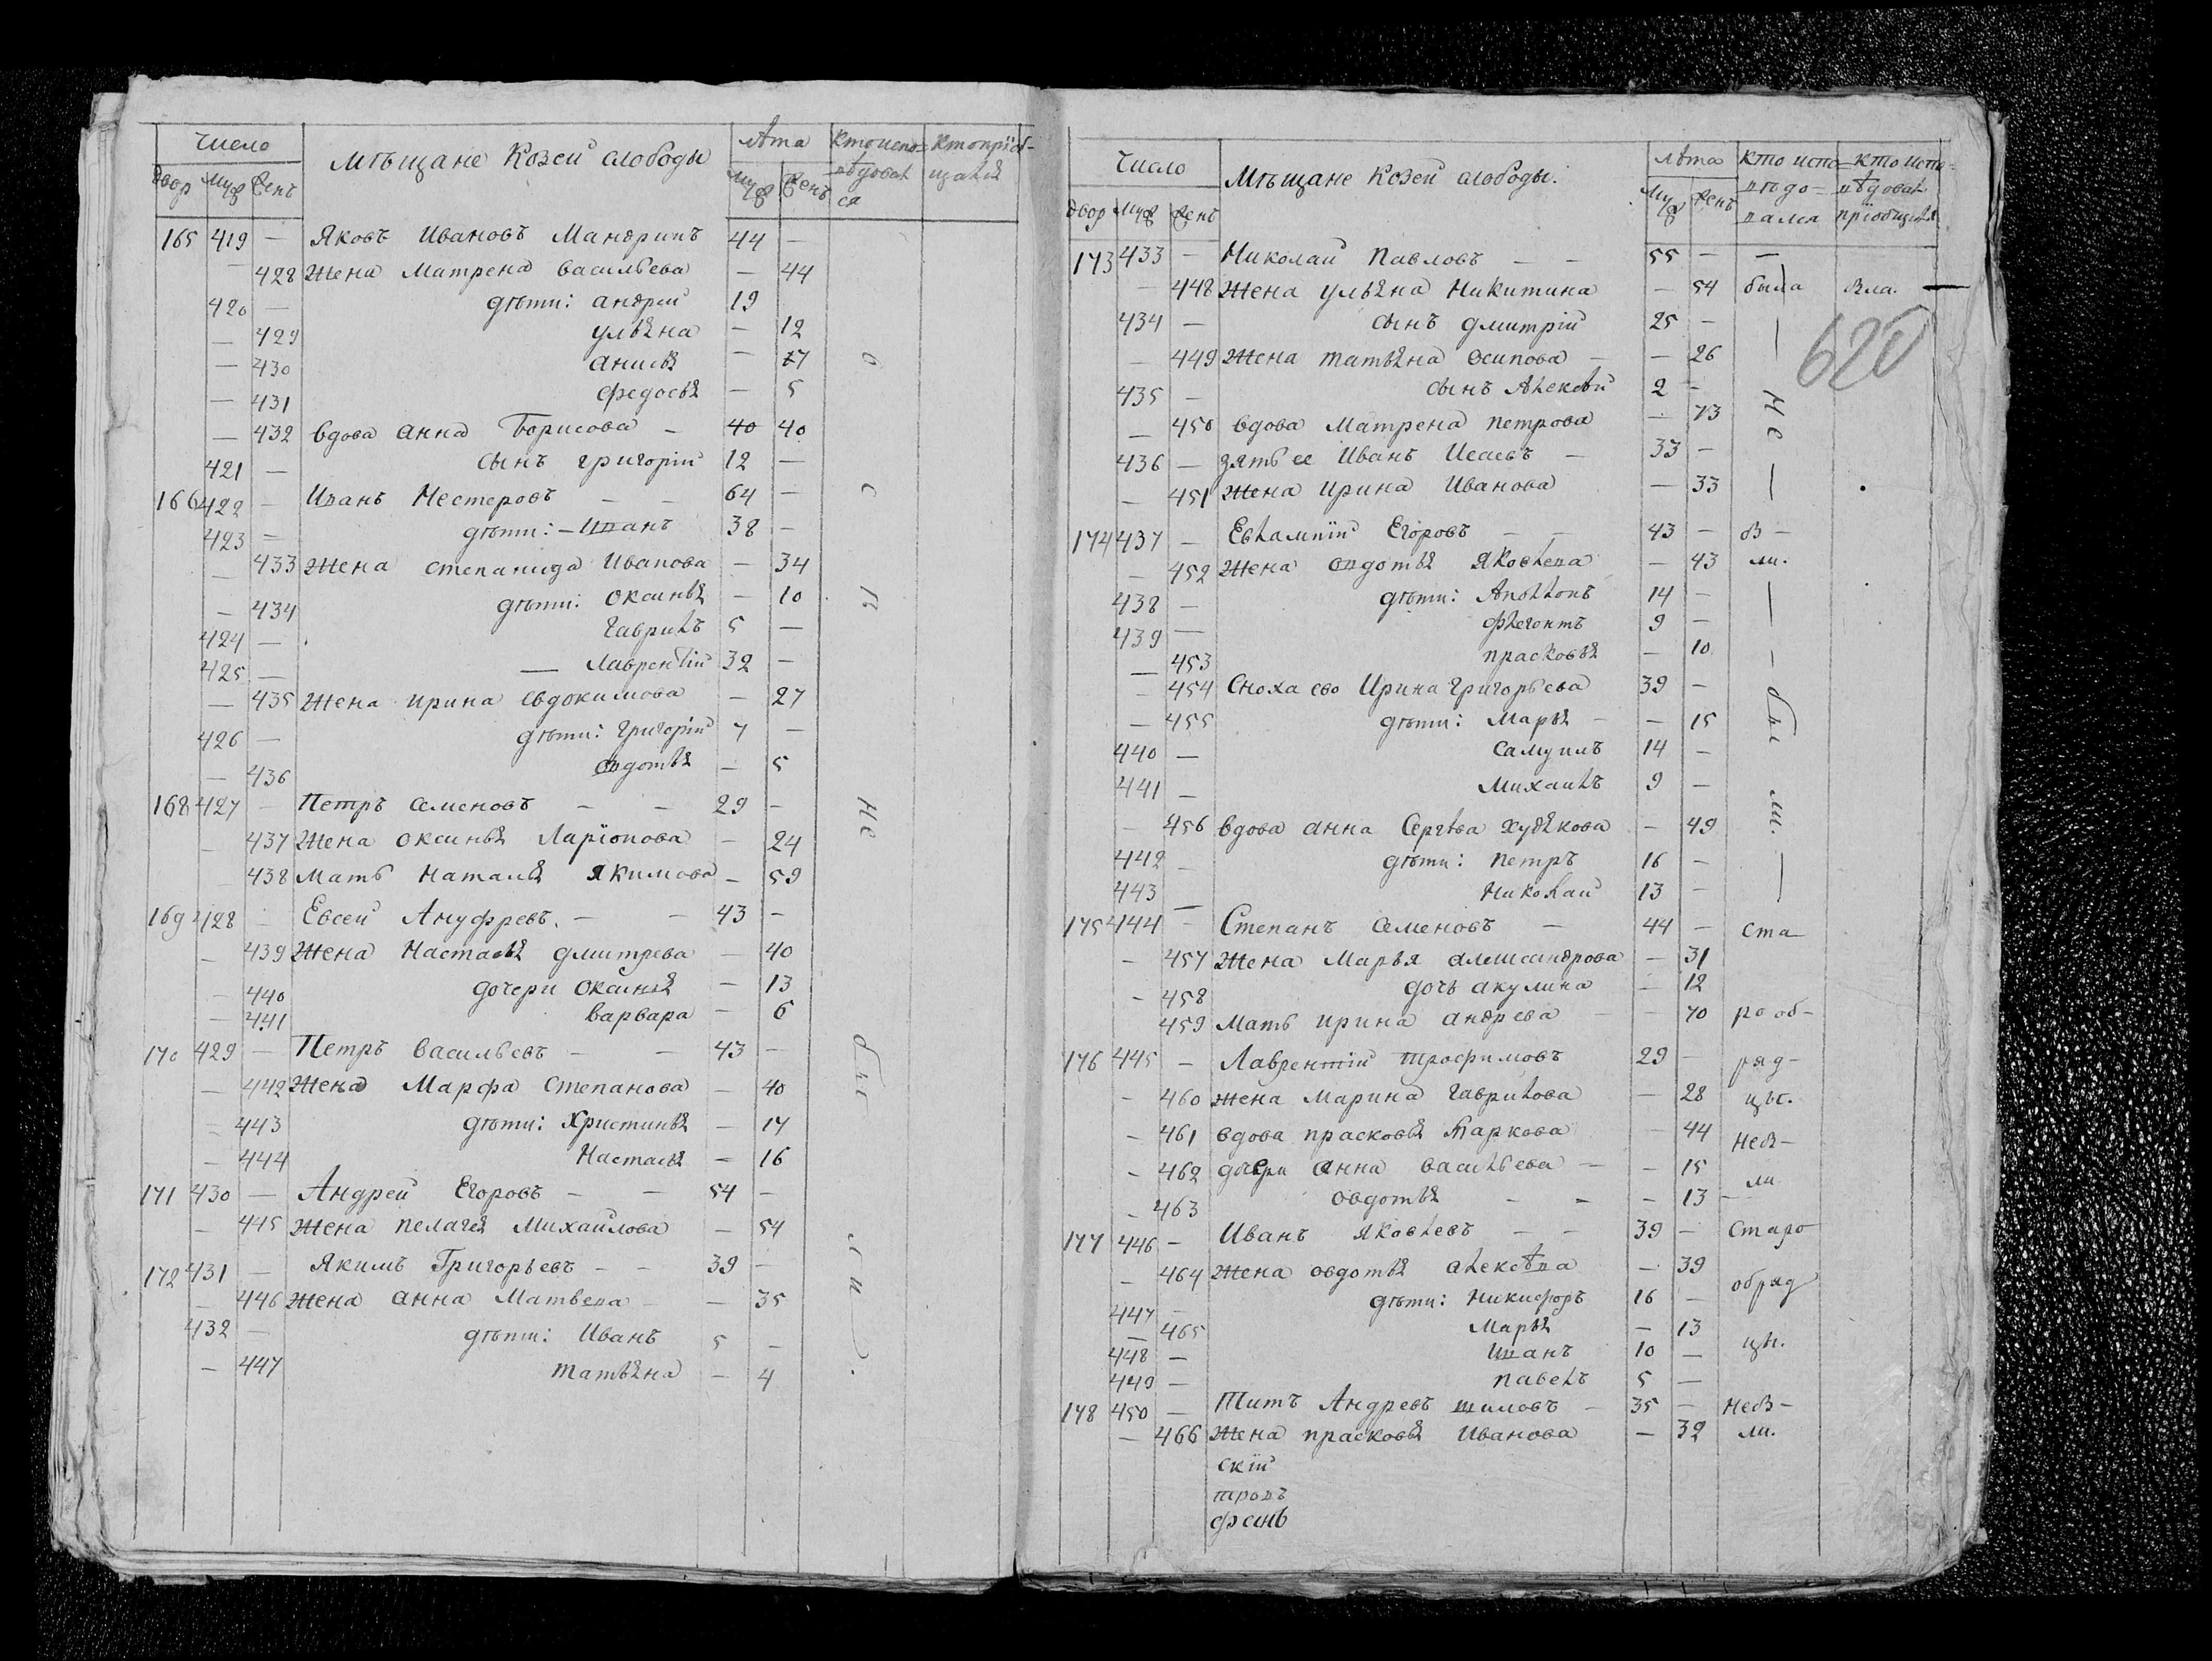 Число Мѣщане Козей слободы Лѣта Кто испо- Кто пріоб-
двор муж женъ муж женъ вѣдовал ся щался
165 419 — Яковъ Ивановъ Мандринъ 44 —
— 428 Жена Матрена васильева — 44
420 — дѣти: андрей 19
— 429 ульяна — 12
— 430 анисья — 17
— 431 федосья — 5
— 432 вдова анна Борисова — 40 40
421 — сынъ григорій 12 —
166 422 — Иванъ Нестеровъ — — 64 —
423 — дѣти: — Иванъ 38 —
— 433 Жена степанида Иванова — 34
— 434 дѣти: оксинья — 10
424 — гаврилъ 5 —
425 — — лаврентій 32 —
— 435 Жена ирина евдокимова — 27
426 — дѣти: григорій 7 —
— 436 овдотья — 5
168 427 — Петръ семеновъ — — 29 —
— 437 Жена оксинья Ларіонова — 24
438 Мать наталья якимова — 59
169 428 Евсей Ануфревъ — — 43 —
— 439 Жена Настасья дмитрева — 40
— 440 дочери оксинья — 13
— 441 варвара — 6
170 429 — Петръ васильевъ — — 43 —
— 442 Жена Марфа степанова — 40
— 443 дѣти: Христинья — 17
— 444 Настасья — 16
171 430 — Андрей Егоровъ — — 54 —
— 445 Жена пелагея Михаилова — 54
172 431 — Якимъ Григорьевъ — — 39 —
— 446 Жена анна Матвева — 35
432 — дѣти: Иванъ 5 —
— 447 татьяна — 4
о с т
не
бы
ли.
Число Мѣщане Козей слободы. Лѣта кто испо- кто испо-
двор муж женъ муж женъ вѣдо- вала вѣдовал пріобщался
173 433 — Николай Павловъ — — 55 — —
— 448 Жена ульяна Никитина — 54 была вла. —
620
434 — сынъ дмитрій 25 —
— 449 Жена татьяна осипова — — 26
435 — сынъ Алексѣй 2 —
— 450 вдова Матрена петрова — 73
436 — зять ее Иванъ Исаевъ — 33 —
— 451 Жена ирина Иванова — 33
174 437 — Евлампій Егоровъ — 43 —
— 452 Жена овдотья яковлева — 43
438 — дѣти: Аполлонъ 14 —
439 — флегонтъ 9 —
— 453 прасковья — 10
— 454 Сноха ево Ирина григорьева 39 —
— 455 дѣти: Марья — — 15
440 — самуилъ 14 —
441 — михаилъ 9 —
— 456 вдова анна Сергѣва худякова — 49
442 — дѣти: петръ 16 —
443 — николай 13 —
не бы ли.
175 444 — Степанъ семеновъ — 44 — ста
— 457 Жена Марья александрова — 31
— 458 дочь акулина — 12
459 Мать ирина андрева — 70 рооб-
176 445 — Лаврентій трофимовъ 29 — ряд-
— 460 жена марина гаврилова — 28 цы.
— 461 вдова прасковья Маркова — 44 неб-
— 462 дочери анна васильева — — 15 ли
— 463 овдотья — — — 13 —
177 446 — Иванъ яковлевъ — — 39 — Старо
— 464 Жена овдотья алексѣва — 39
447 — дѣти: никифоръ 16 — обряд
— 465 марья — 13
448 — иванъ 10 — цы.
449 — павелъ 5 —
178 450 — Титъ Андревъ шиловъ — 35 — неб-
— 466 Жена прасковья Иванова — 32 ли.
скій
тровъ
фень